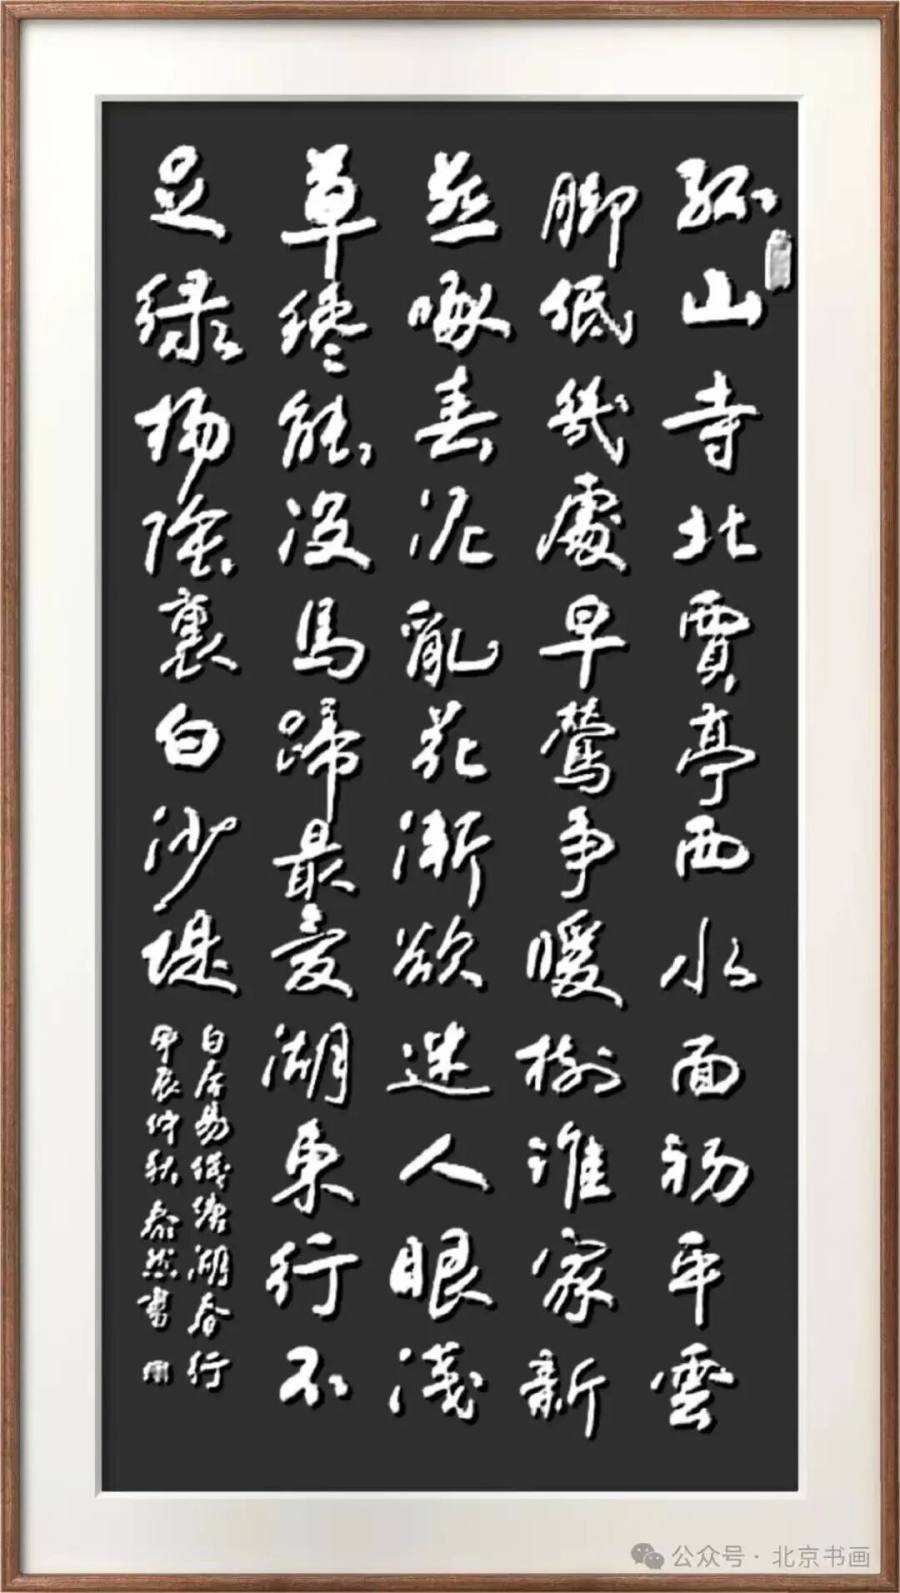 孤山寺北賈亭西水面初平雲
脚低幾處早鶯爭暖樹誰家新
燕啄春泥亂花漸欲迷人眼淺
草纔能沒馬蹄最愛湖東行不
足綠楊陰裏白沙堤
白居易錢塘湖春行
甲辰仲秋泰然書
公众号·北京书画